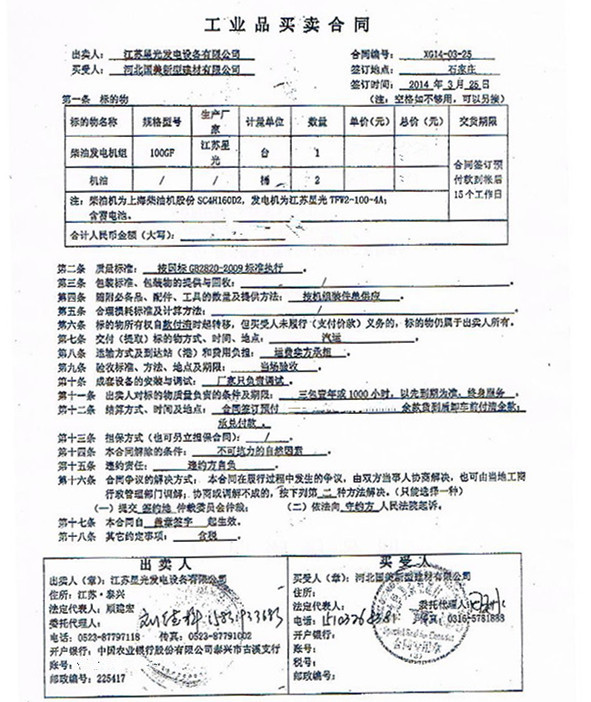 工业品买卖合同
出卖人：江苏星光发电设备有限公司 合同编号：XG14-03-25
买受人：河北国美新型建材有限公司 签订地点：石家庄
签订时间：2014年3月25日
第一条 标的物 （注：空格如不够用，可以另接）
标的物名称 规格型号 生产厂家 计量单位 数量 单价(元) 总价（元） 交货期限
柴油发电机组 100GF 江苏星光 台 1
机油 / / 桶 2
合同签订预付款到帐后15个工作日
注：柴油机为上海柴油机股份SC4H160D2，发电机为江苏星光TFW2-100-4A；
含蓄电池。
合计人民币金额（大写）：
第二条 质量标准：按国标GB2820-2009标准执行。
第三条 包装标准、包装物的提供与回收： /
第四条 随附必备品、配件、工具的数量及提供方法：按机组装件悉供应
第五条 合理损耗标准及计算方法： /
第六条 标的物所有权自款付清时起转移，但买受人未履行（支付价款）义务的，标的物仍属于出卖人所有。
第七条 交付（提取）标的物方式、时间、地点： 汽运
第八条 运输方式及到达站（港）和费用负担： 运费卖方承担
第九条 验收标准、方法、地点及期限： 当场验收
第十条 成套设备的安装与调试： 厂家只负责调试
第十一条 出卖人对标的物质量负责的条件及期限： 三包壹年或1000小时，以先到期为准，终身服务
第十二条 结算方式、时间及地点：合同签订预付 余款货到后卸车前付清全款；
承兑付款。
第十三条 担保方式（也可另立担保合同）： /
第十四条 本合同解除的条件： 不可抗力的自然因素
第十五条 违约责任： 违约方自负
第十六条 合同争议的解决方式：本合同在履行过程中发生的争议，由双方当事人协商解决，也可由当地工商
行政管理部门调解；协商或调解不成的，按下列第二种方法解决。（只能选择一种）
（一）提交 签约地 仲裁委员会仲裁； （二）依法向 守约方 人民法院起诉。
第十七条 本合同自 盖章签字 起生效。
第十八条 其它约定事项： 含税
出卖人
出卖人（章）：江苏星光发电设备有限公司
住所：江苏·泰兴
法定代表人：顺建宏
委托代理人：
电话：0523-87797118 传真：0523-87791002
开户银行：中国农业银行股份有限公司泰兴市古溪支行
账号：
邮政编号：225417
买受人
买受人（章）：河北国美新型建材有限公司
住所：
法定代表人： 委托代理人：
电话： 传真：0316-5781888
开户银行：
账号：
税号：
邮政编号：